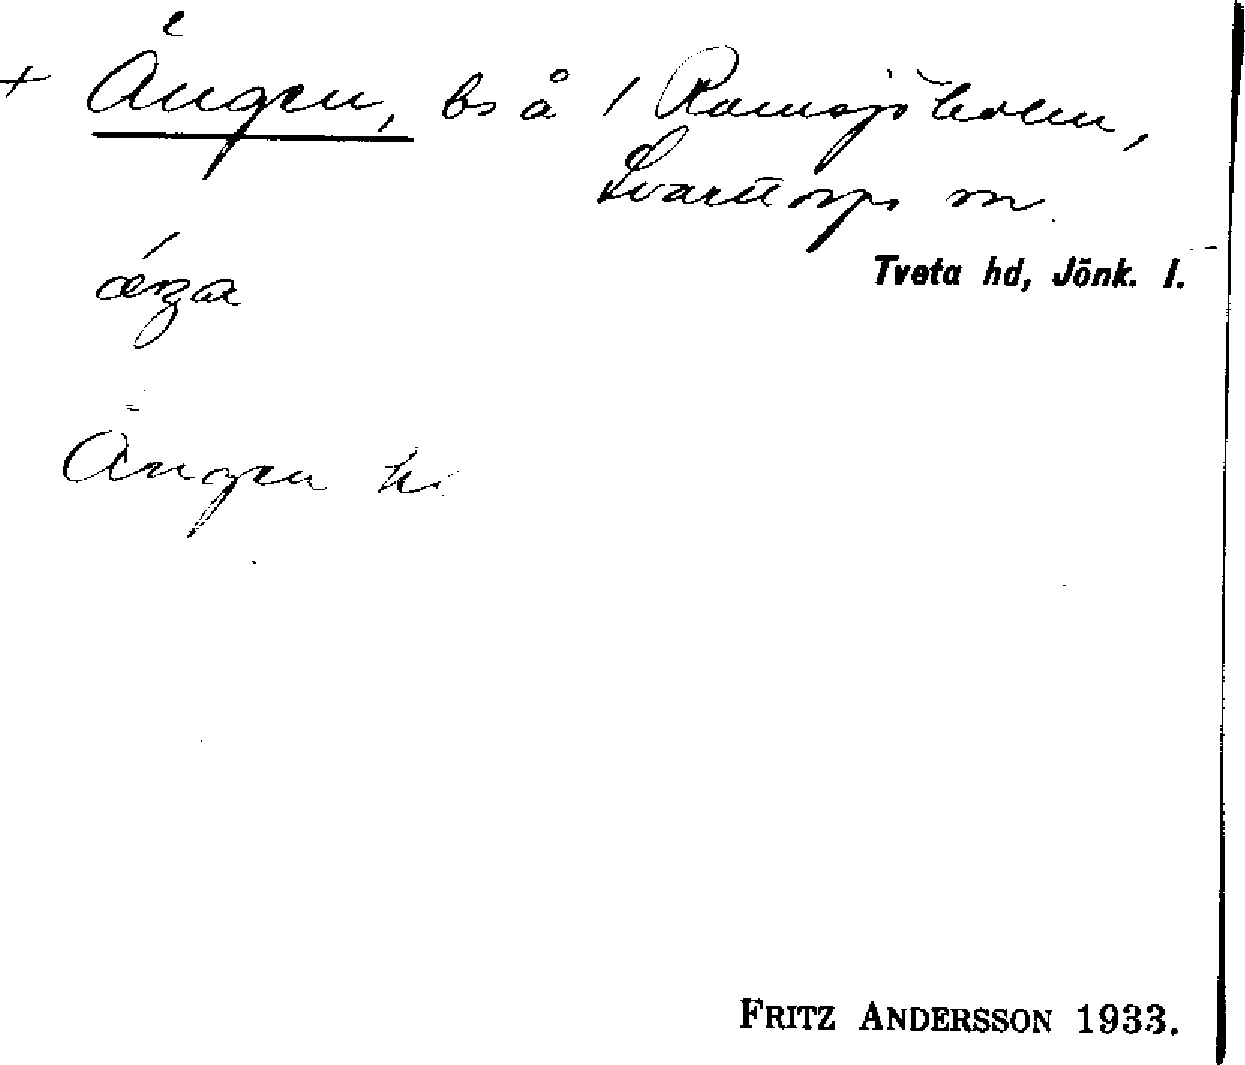 + Ängen, bs å 1 Ramsjöholm,
Svarttorps sn
Tveta hd, Jönk. l.
Ängen
FRITZ ANDERSSON 1933.